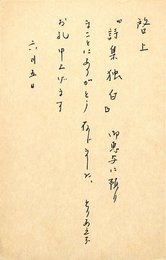 啓上
『詩集独白』御恵与に預り
まことにありがとう存じました、とりあえず
お礼申上げます
六月五日